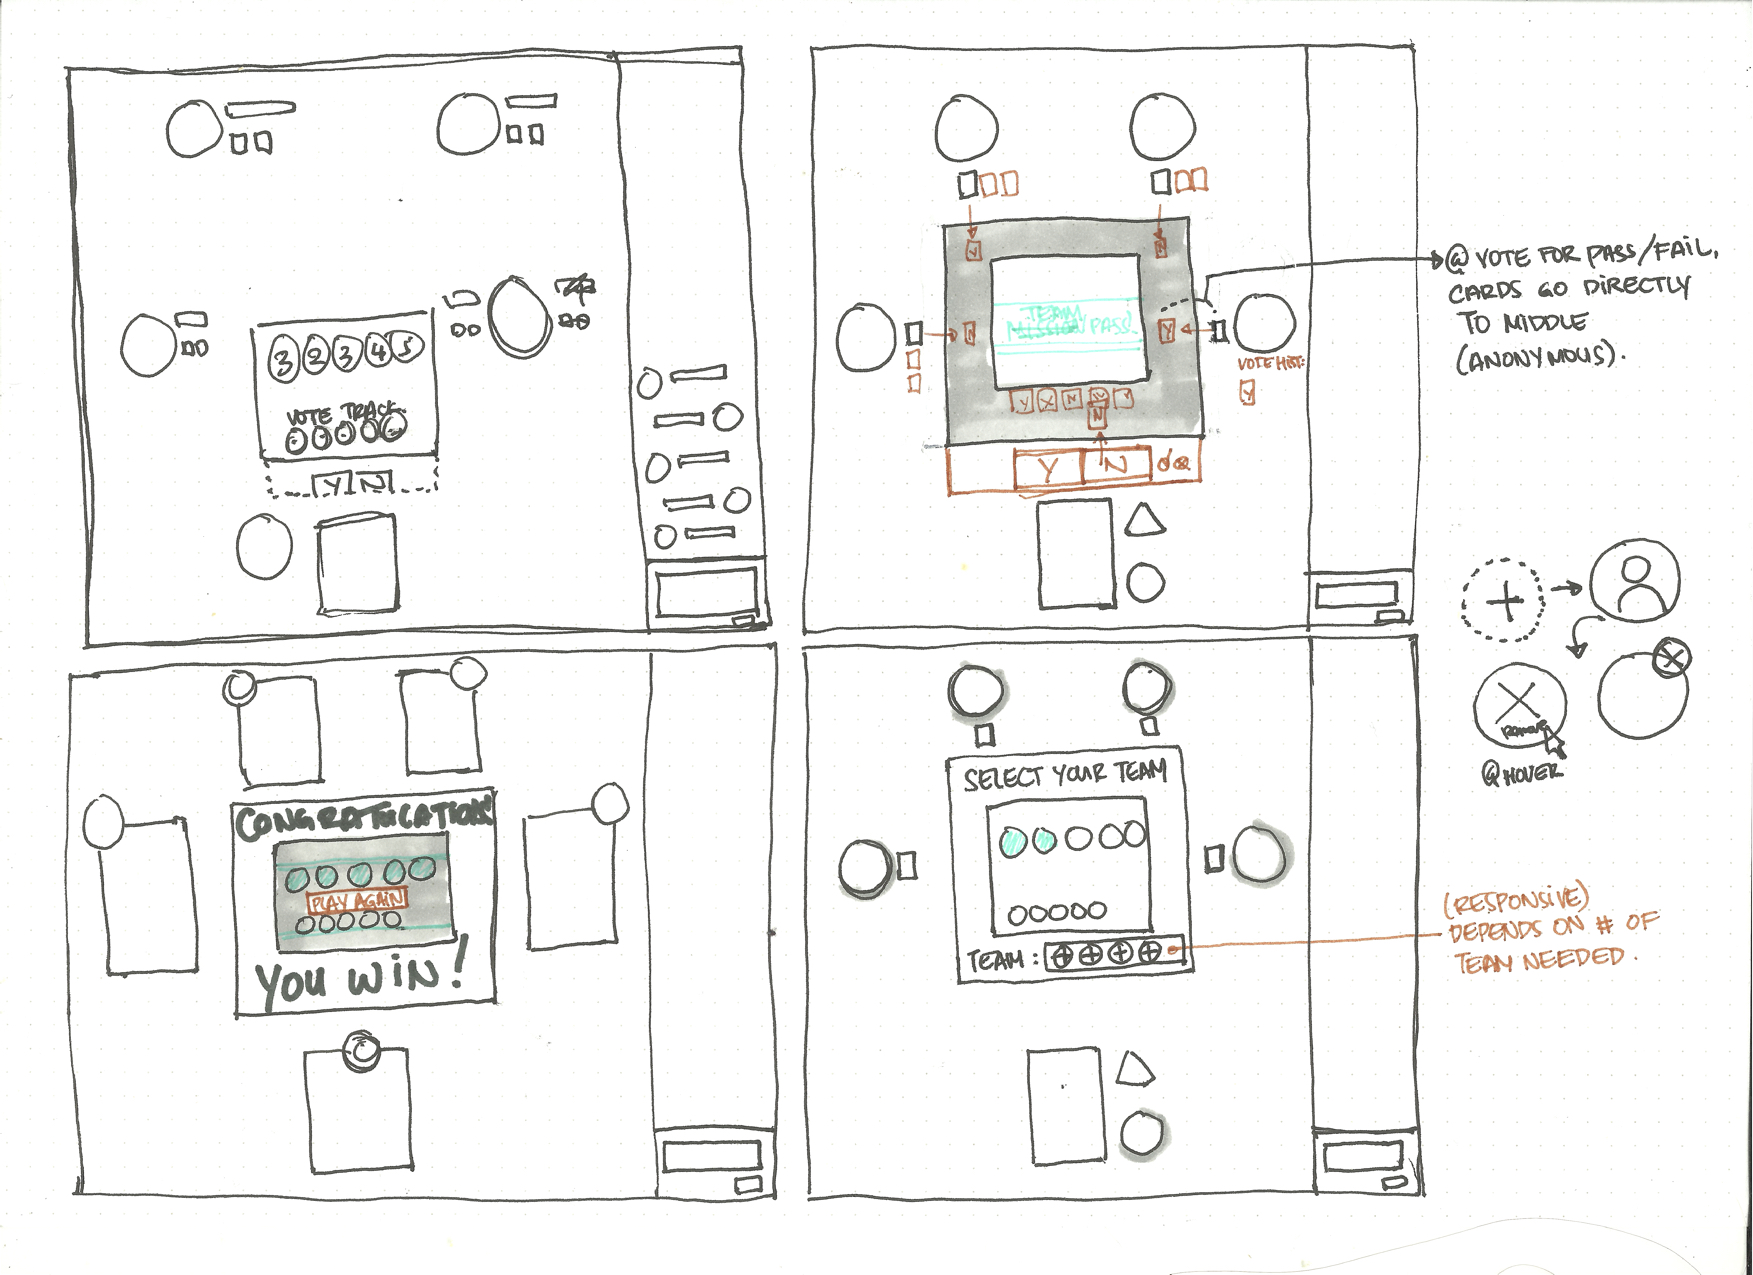 3 2 3 4 5
VOTE TRACK
Y N
Y
N
TEAM
MISSION PASS
N
Y
Y X N N Y
N
Y N
VOTE HIST:
Y
@ VOTE FOR PASS/FAIL,
CARDS GO DIRECTLY
TO MIDDLE
(ANONYMOUS).
REMOVE
@ HOVER
CONGRATULATIONS
PLAY AGAIN
YOU WIN!
SELECT YOUR TEAM
TEAM :
(RESPONSIVE)
DEPENDS ON # OF
TEAM NEEDED.